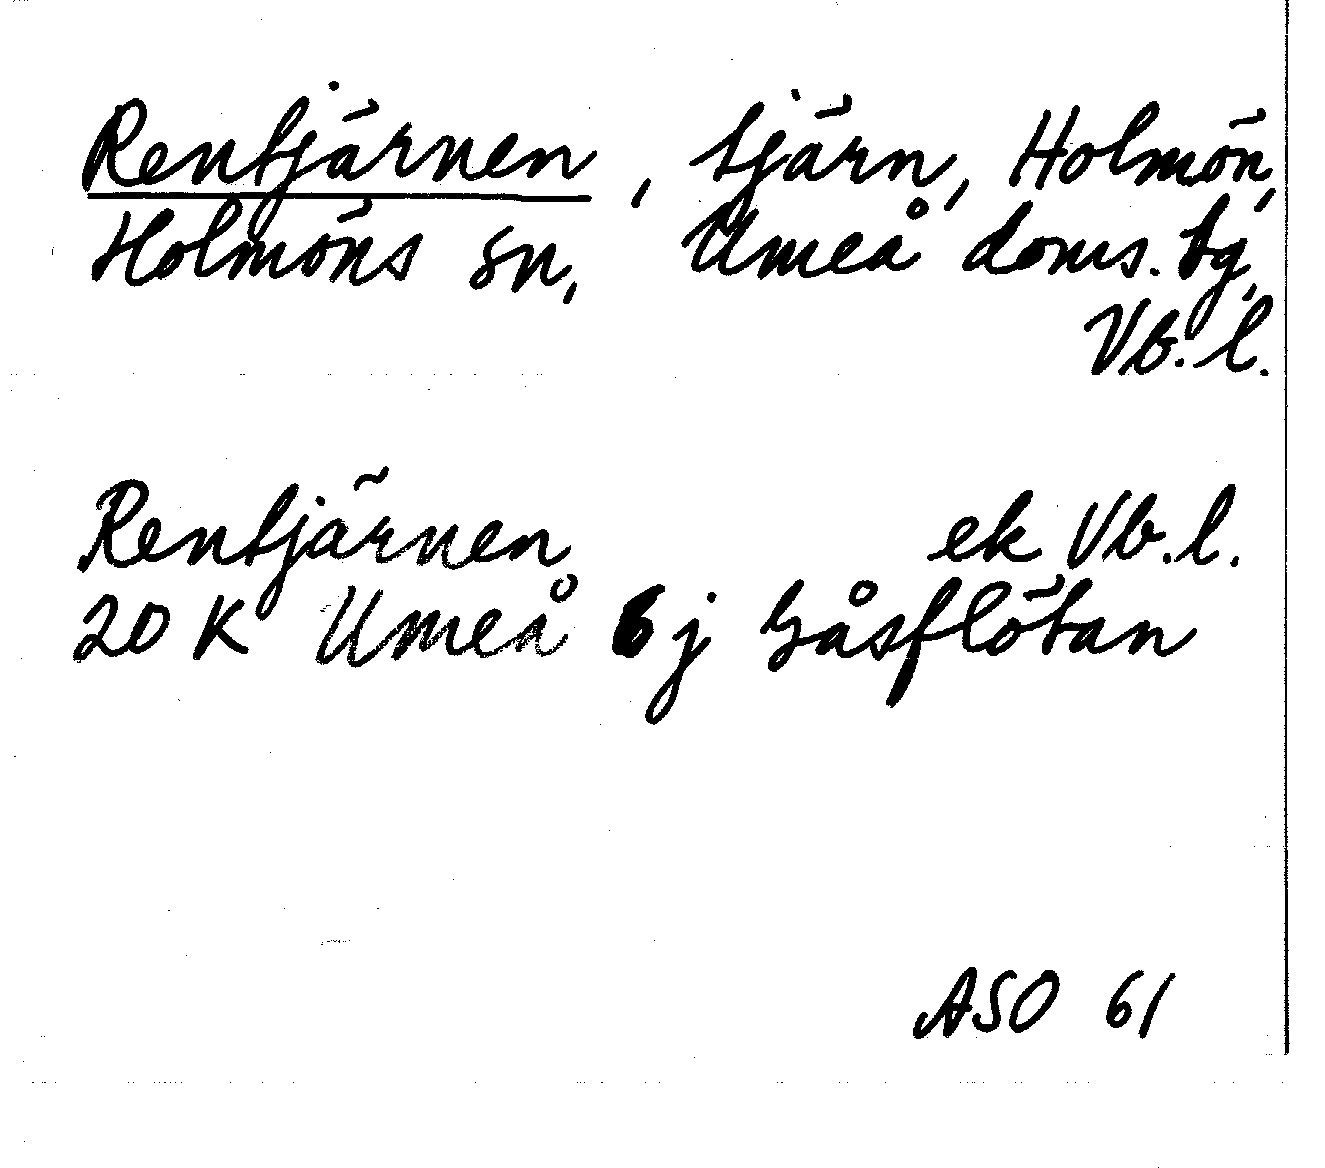 Rentjärnen, tjärn, Holmön,
Holmöns sn, Umeå doms. tg,
Vb. l.
Rentjärnen ek Vb. l.
20 K Umeå 6 j Gåsflötan
ASO 61